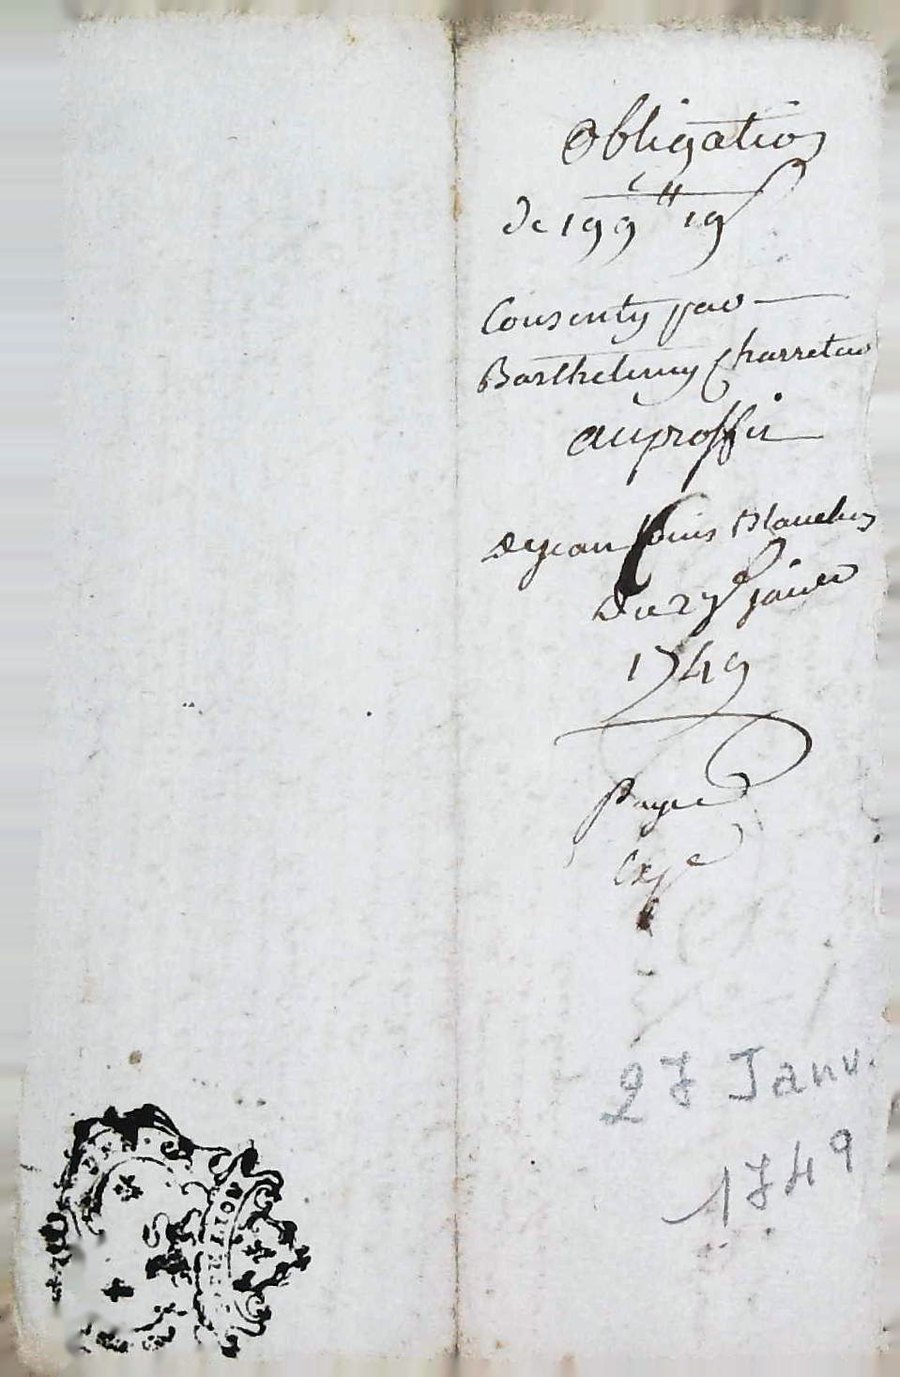 Obligation
de 199 ₶ 19 ſ
Consenty par
Barthelemy Charretier
au proffit
de jean Louis Blanchon
Du 27e janver
1749
Payée
Exp e
27 Janv.
1749